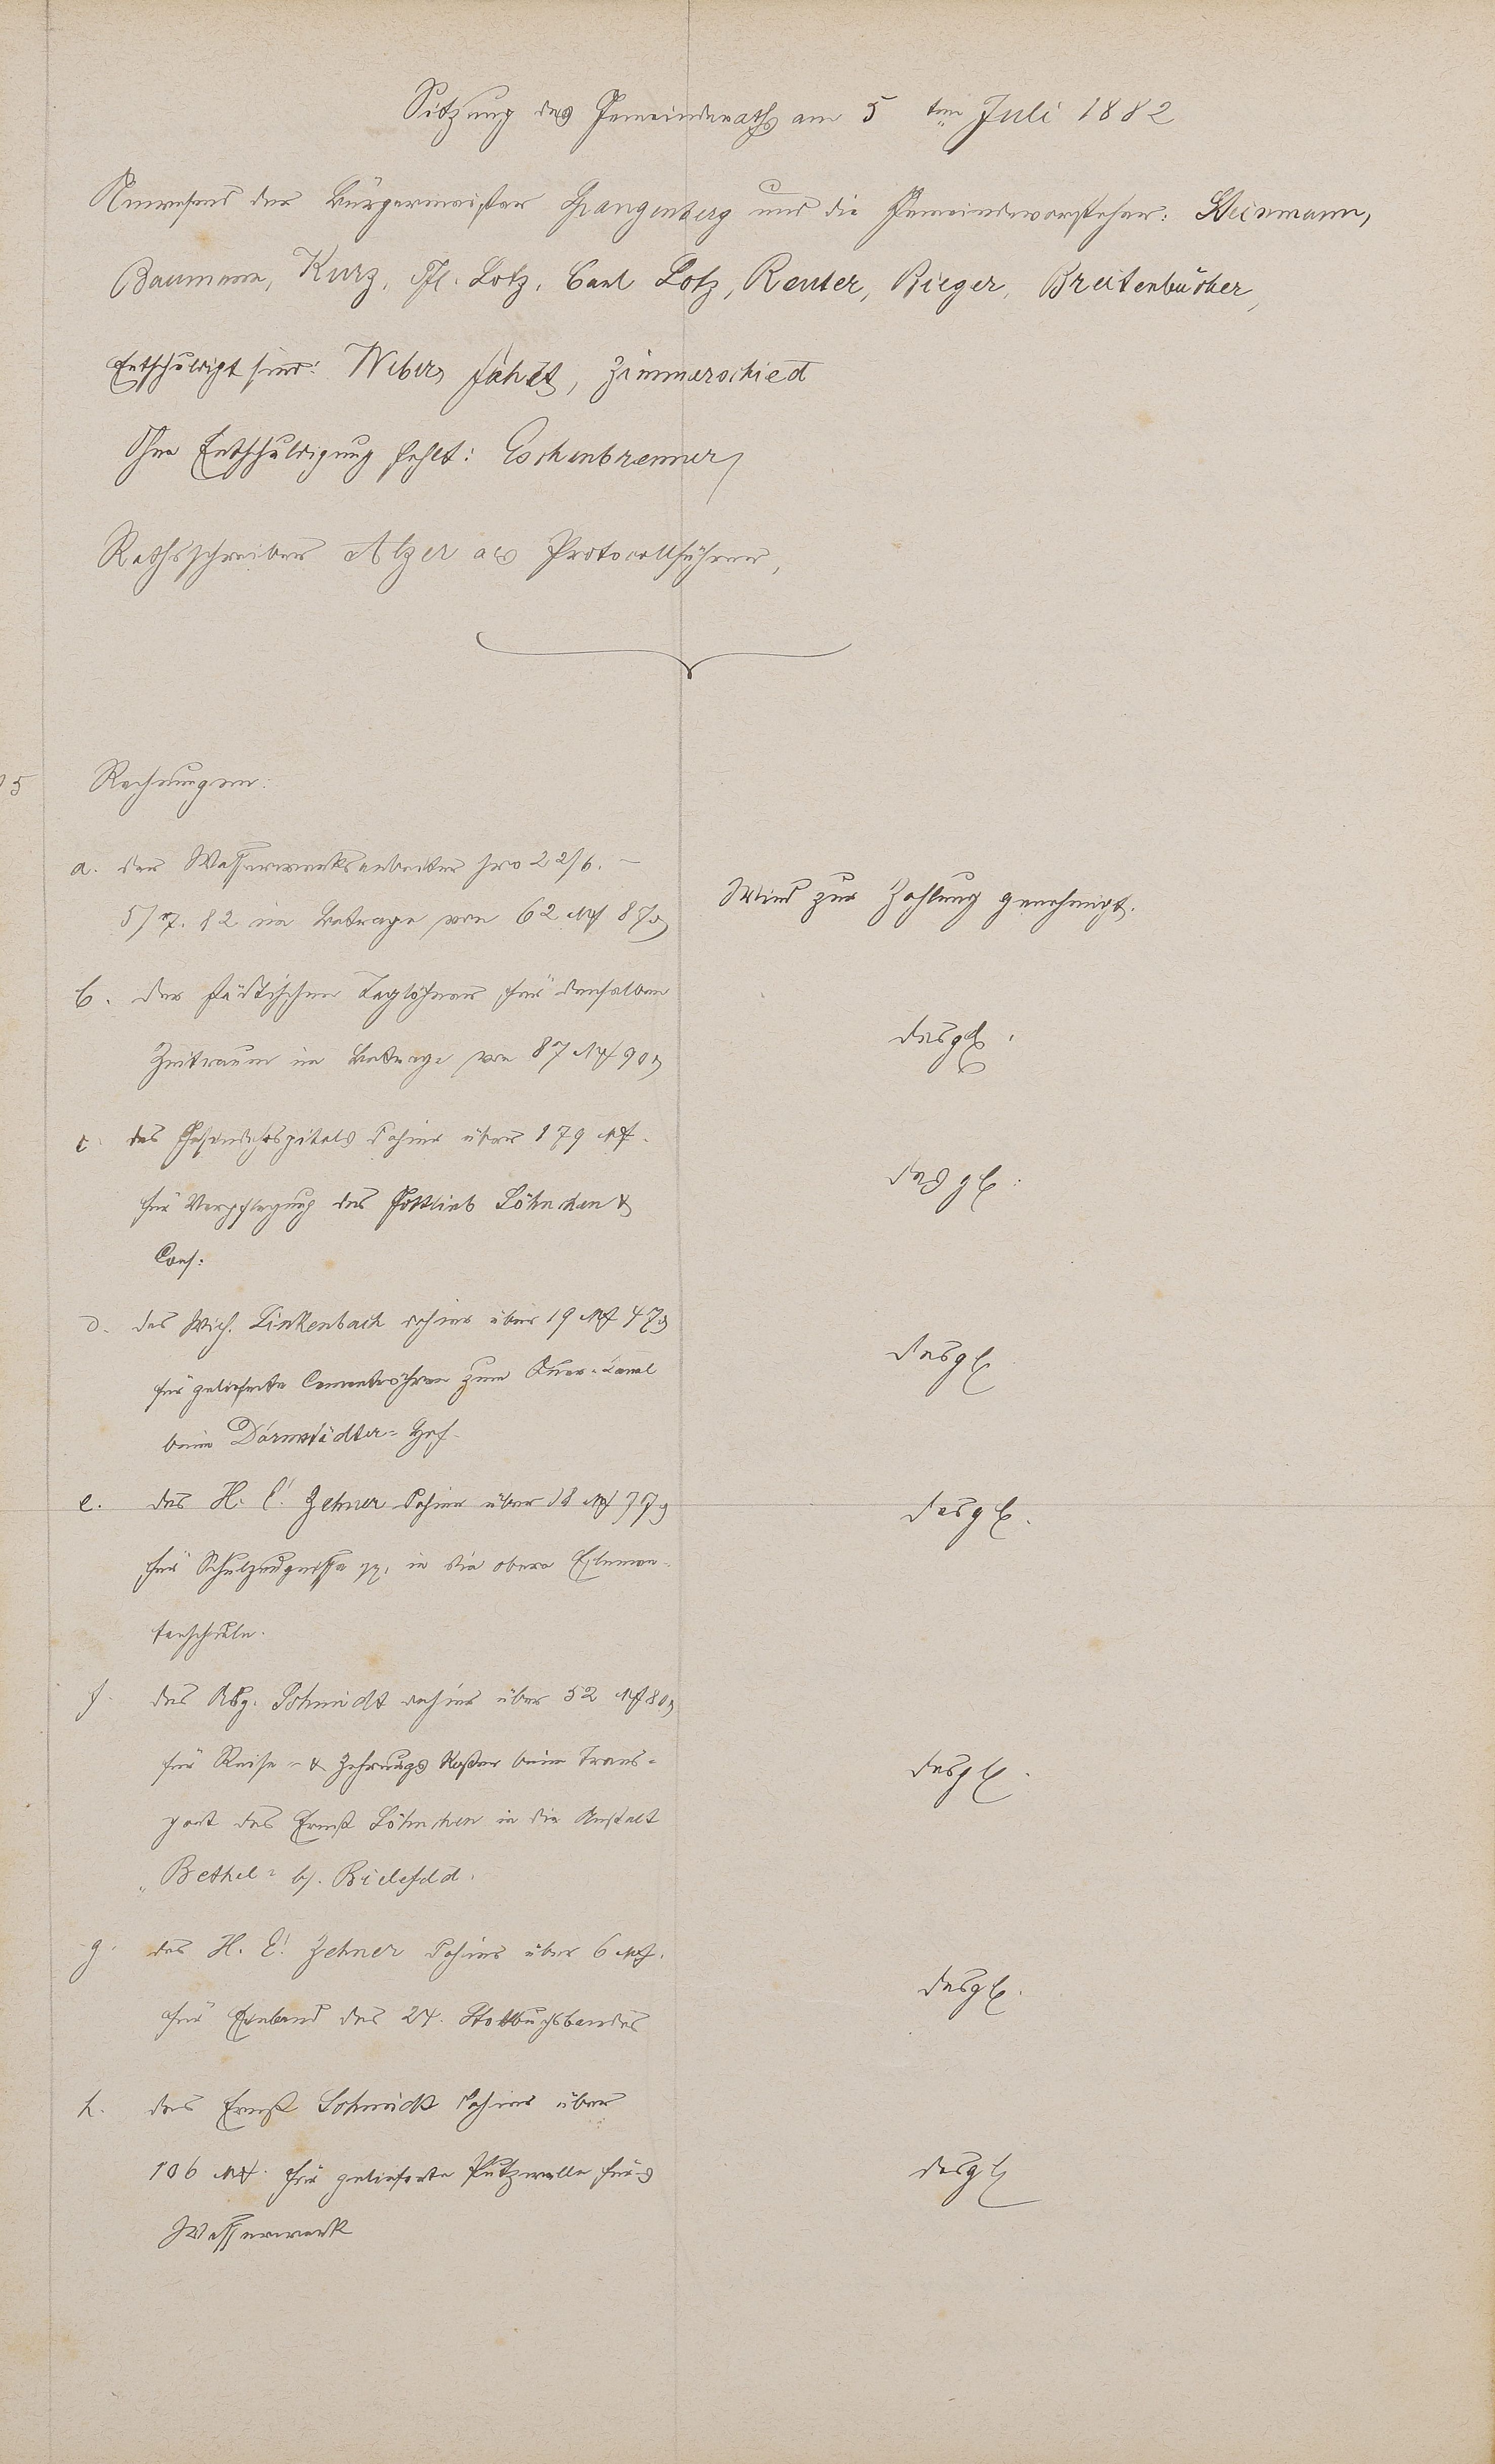 Sitzung des Gemeinderaths am 5ten Juli 1882
Anwesend der Bürgermeister Spangenberg und die Gemeindevorsteher: Steinmann,
Baumann, Kurz, Ph. Lotz, Carl Lotz, Reuter, Rieger, Breitenbücher,
Entschuldigt sind: Weber, Jahrs, Zimmerschied
Ohne Entschuldigung fehlt: Eschenbrenner,
Rathsschreiber Alzer als Protocollführer,
5 Rechnungen:
a. der Wasserwerksarbeiter pro 22/6. –
5/7. 82 im Betrage von 62 Mk 87 ₰
Wird zur Zahlung genehmigt.
b. der städtischen Taglöhner für denselben
Zeitraum im Betrage von 87 Mk 90 ₰
desgl.
c. des Gesindehospitals dahier über 179 Mk.
für Verpflegung des Gottlieb Löhnchen &
Cons:
desgl.
d. des Mich. Linkenbach dahier über 19 Mk 47 ₰
für gelieferte Cementröhren zum Quer-Canal
beim Darmstädter-Hof.
desgl.
e. des H. C. Zehner dahier über 18 Mk 77 ₰
für Schulzeugnisse pp. in die obere Elemen-
tarschule.
desgl.
f. des Schmidt dahier über 52 Mk 80 ₰
für Reise- & Zehrungs Kosten beim Trans-
port des Ernst Löhnchen in die Anstalt
„Bethel" b/. Bielefeld.
desgl.
g. des H. C. Zehner dahier über 6 Mk.
für Einband des 24. Stockbuchsbandes
desgl.
h. des Ernst Schmidt dahier über
106 Mk. für gelieferte Putzwolle fürs
Wasserwerk
desgl